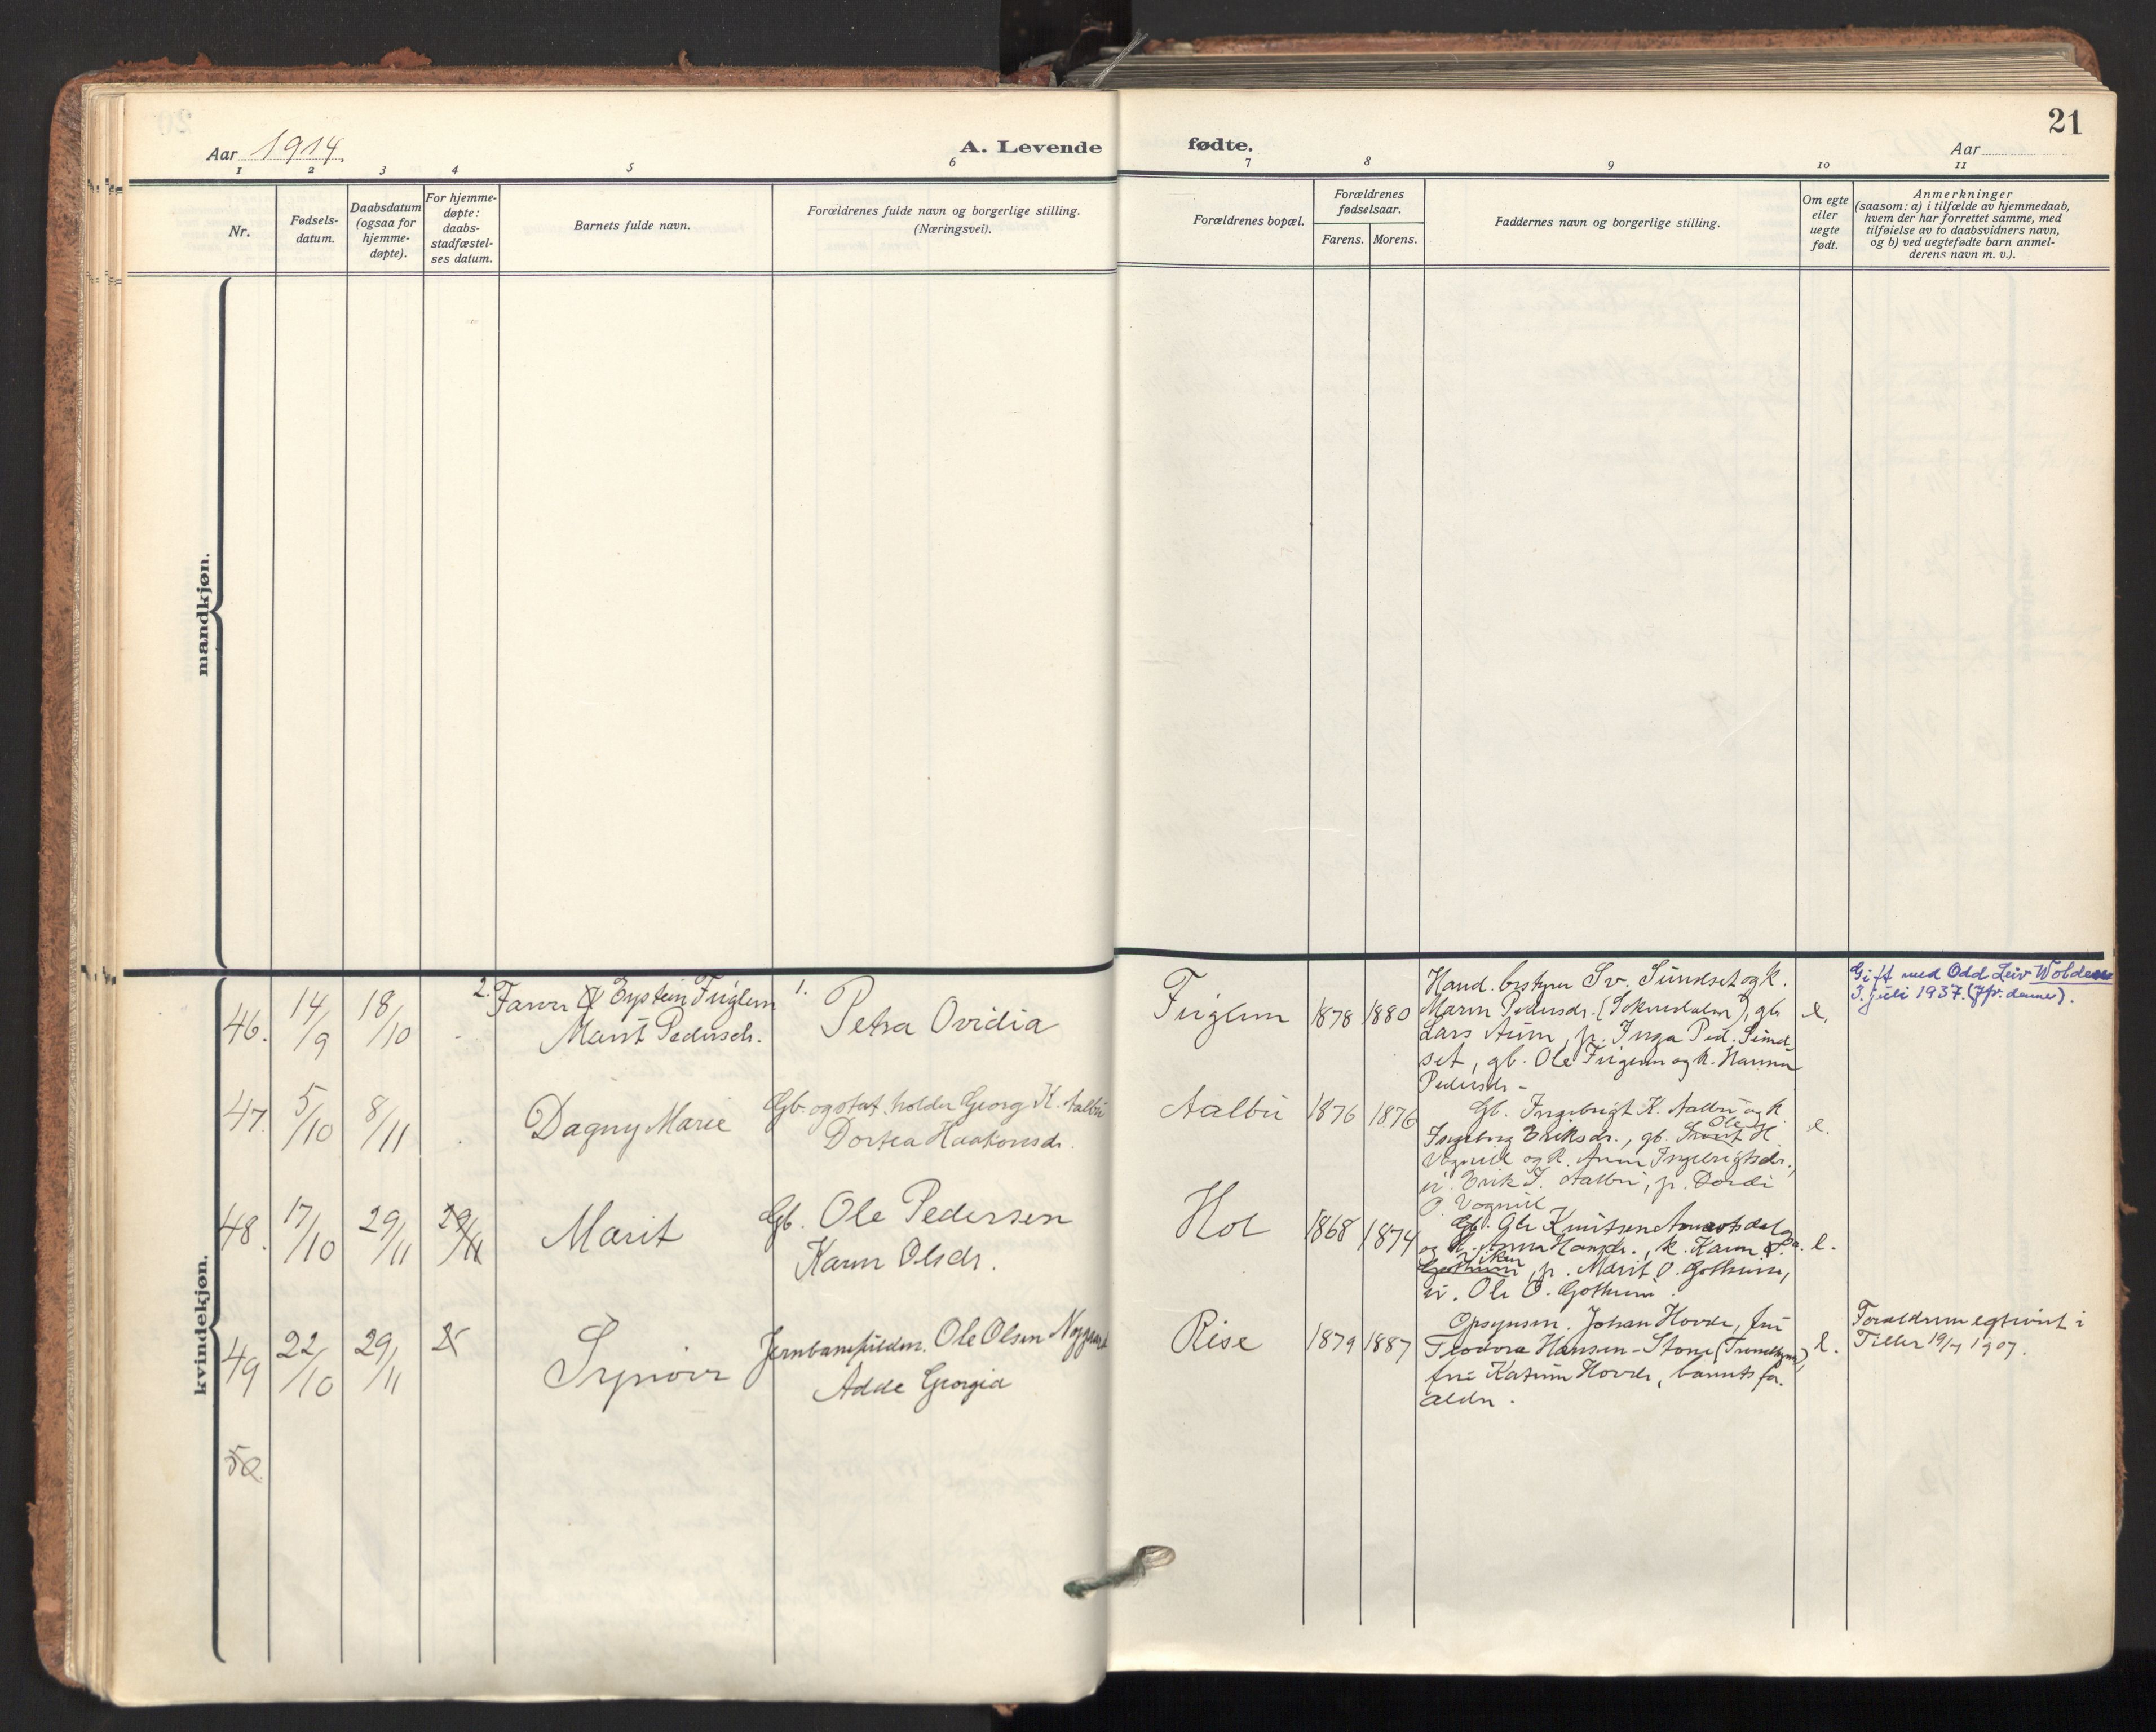 21
Aar 1914.
A. Levende
fødte.
Aar
1 2 3 4 5 6 7 8 9 10 11
Nr.
Fødsels-
datum.
Daabsdatum
(ogsaa for
hjemme-
døpte).
For hjemme-
døpte:
daabs-
stadfæstel-
ses datum.
Barnets fulde navn.
Forældrenes fulde navn og borgerlige stilling.
(Næringsvei).
Forældrenes bopæl.
Forældrenes
fødselsaar.
Farens. Morens.
Faddernes navn og borgerlige stilling.
Om egte
eller
uegte
født.
Anmerkninger
(saasom: a) i tilfælde av hjemmedaab,
hvem der har forrettet samme, med
tilføielse av to daabsvidners navn,
og b) ved uegtefødte barn anmel-
derens navn m. v.).
mandkjøn.
kvindekjøn.
46.
14/9
18/10
2.
Eystein Fuglem
Marit Pedersdr.
1.
Petra Ovidia
Fuglem
1878
1880
Hand. bestyrer Sv. Sundset og k.
Maren Pedersdr. (Soknedalen), gb
Lars Aune, p. Inga Ped. Sund-
set, gb. Ole Fuglem og k. Hanna
Pedersdr -
e.
Gift med Odd Leiv Wolden
3. juli 1937. (Jfr. denne).
47.
5/10
8/11
Dagny Marie
Gb. og stat. holder Georg K. Aalbu
Dortea Haakonsdr.
Aalbu
1876
1876
Gb. Ingebrigt K. Aalbu og k
Ingeborg Eriksdr., gb. Ole H
Vognild og k. Anne Ingebrigtsdr.,
u. Erik I. Aalbu, p. Dordi
O. Vognild
e.
48.
17/10
29/11
29/11
Marit
Gb. Ole Pedersen
Karen Olsdr.
Hol
1868
1874
Gb. Ole Knutsen
og k. Anna Hansdr., k. Karen O.
Viken
, p. Marit O. Gotheim,
u. Ole O. Gotheim.
e.
49
22/10
29/11
Synøve
Ole Olsen Nyggard
Adde Georgia
Rise
1879
1887
Opsynsm. Johan Hovde, fru
Teodora Hansen-Stone (Trondhjem),
fru Katrin Hovde, barnets for-
ældre.
e.
Forældrene egteviet i
Tiller 19/7 1907.
50.